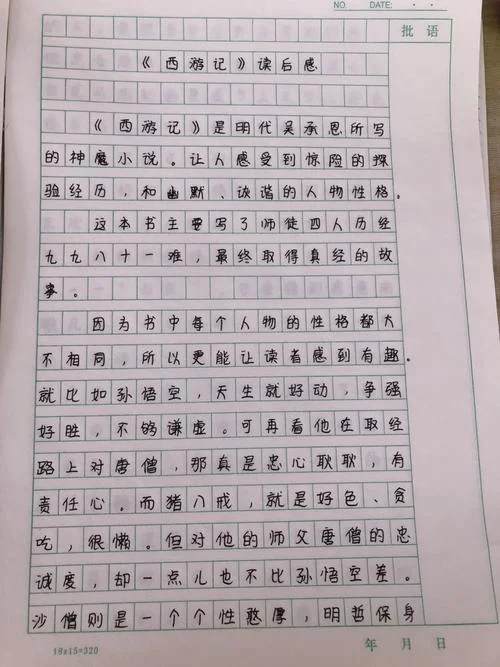 NO. DATE: · ·
批语
《西游记》读后感
《西游记》是明代吴承恩所写
的神魔小说。让人感受到惊险的探
验经历,和幽默、诙谐的人物性格。
这本书主要写了师徒四人历经
九九八十一难,最终取得真经的故
事。
因为书中每个人物的性格都大
不相同,所以更能让读者感到有趣。
就比如孙悟空,天生就好动,争强
好胜,不够谦虚。可再看他在取经
路上对唐僧,那真是忠心耿耿,有
责任心。而猪八戒,就是好色、贪
吃,很懒。但对他的师父唐僧的忠
诚度,却一点儿也不比孙悟空差。
沙僧则是一个个性憨厚,明哲保身
18x15=320
年 月 日